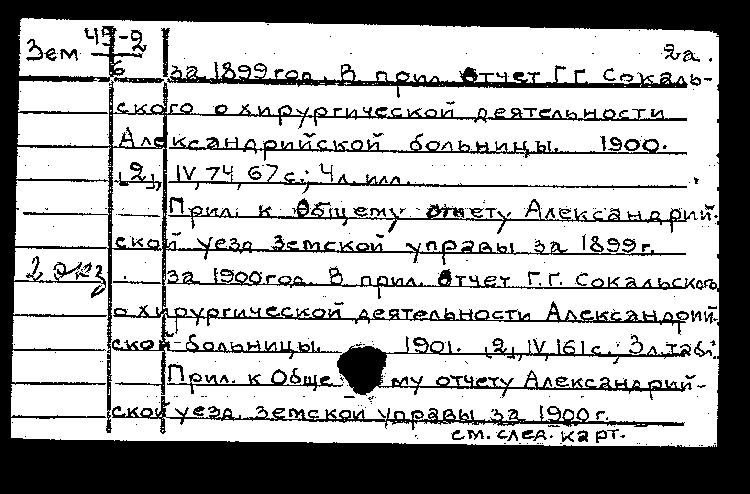 Зем 45-2/6
2а.
за 1899 год. В прил. Отчет Г.Г. Сокаль-
ского о хирургической деятельности
Александрийской больницы. 1900.
[2], IV, 74, 67 с.; 4 л. илл.
Прил. к Общему отчету Александрий-
ской уезд. земской управы за 1899 г.
2 экз
за 1900 год. В прил. Отчет Г.Г. Сокальского
о хирургической деятельности Александрий-
ской больницы. 1901. [2], IV, 161 с.; 3 л. табл.
Прил. к Обще му отчету Александрий-
ской уезд. земской управы за 1900 г.
см. след. карт.